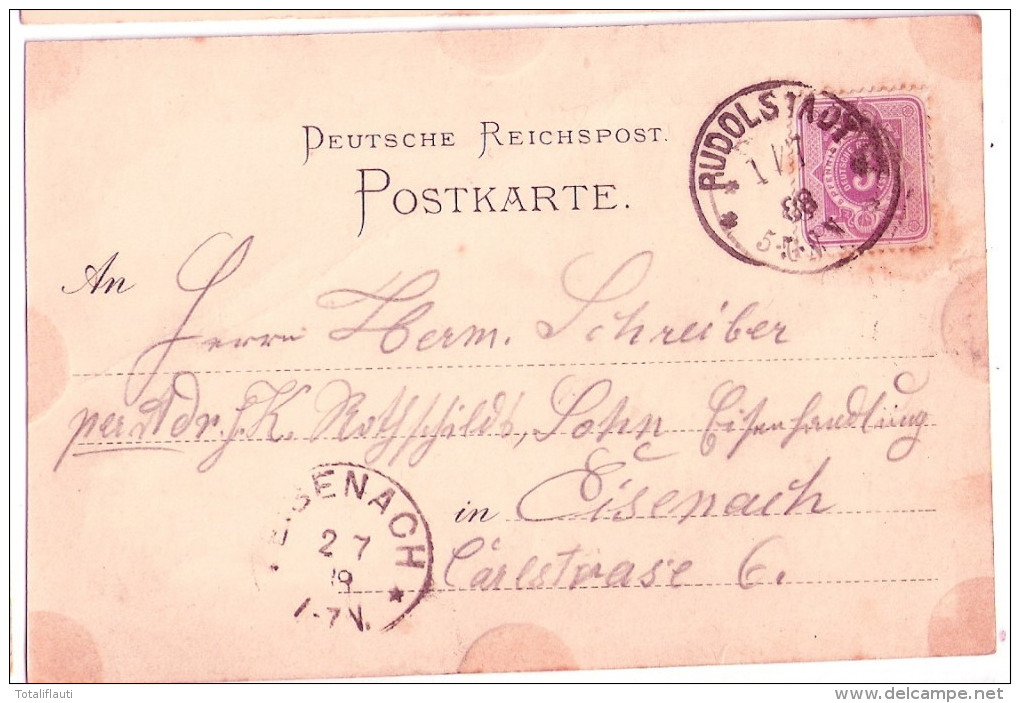 DEUTSCHE REICHSPOST.
POSTKARTE.
RUDOLSTADT
1 7
88
5-6 N
PFENNIG
DEUTSCHE
5
An
Herrn Herm. Schreiber
per Adr. J. K. Rothschild's, Sohn Eisenhandlung
in Eisenach
Carlstrase 6.
EISENACH
2 7
18
-7 N.
Totaliflauti
www.delcampe.net